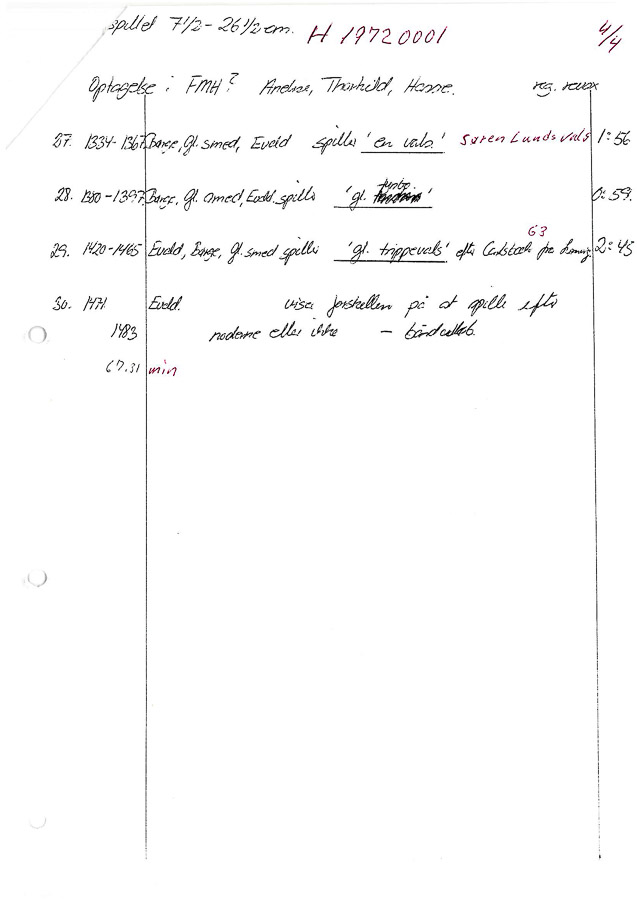 spillet 7 1/2 - 26 1/2 cm. H 19720001 4/4
Optagelse i FMH? Andrea, Thorkild, Hanne. reg. revox
27. 1334-1367 Børge, Gl. smed, Evald spiller 'en vals.' Søren Lunds vals 1:56
28. 1380-1397 Børge, Gl. smed, Evald spiller 'gl. ' 0:59.
63
29. 1420-1465 Evald, Børge, Gl. smed spiller 'gl. trippevals' efter fra 2:45
30. 1471 Evald. viser forskellen på at spille efter
1483 noderne eller ikke —
67.31 min